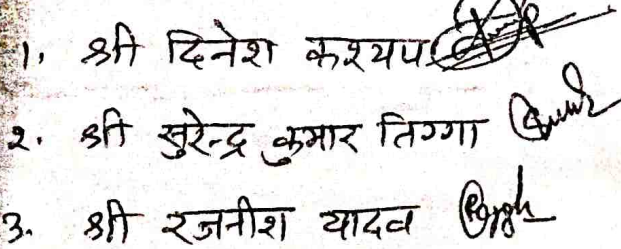 1. श्री दिनेश कश्यप
2. श्री सुरेन्द्र कुमार तिग्गा
3. श्री रजनीश यादव